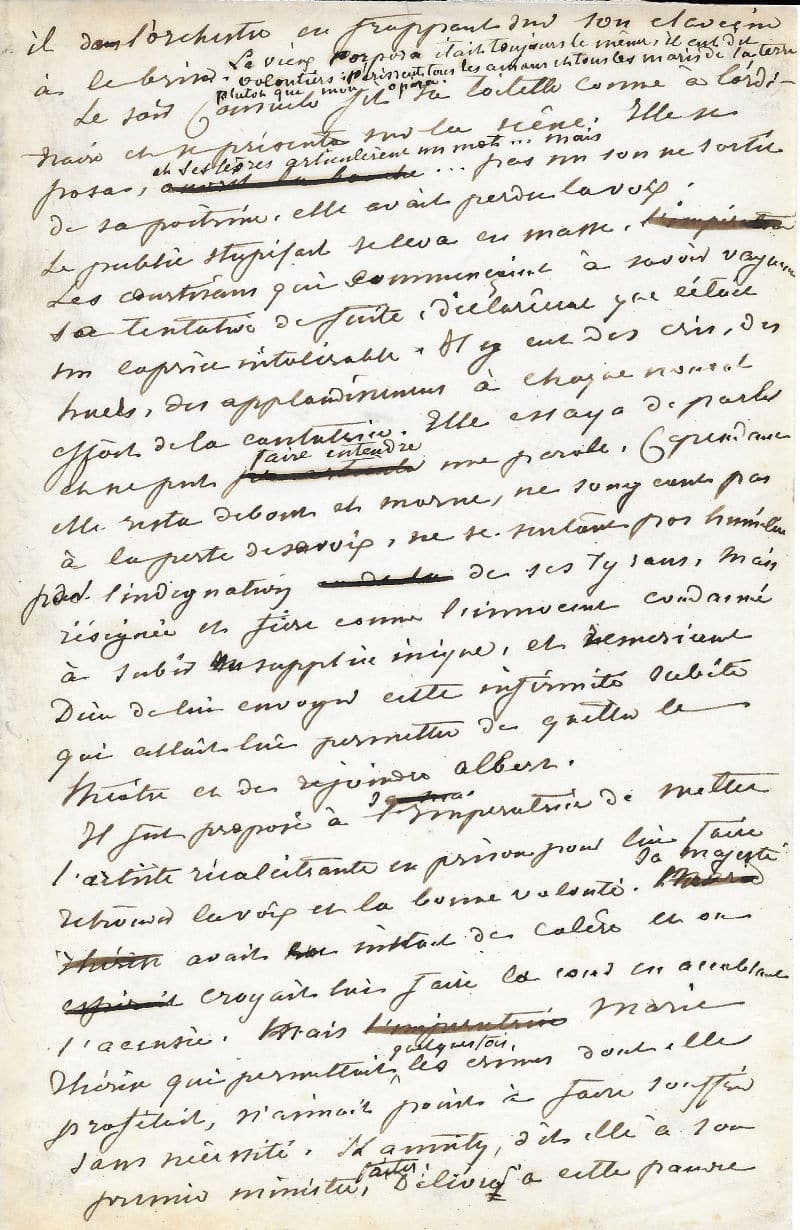 il dans l'orchestre en frappant sur son clavecin
à le briser. Le vieux Porpora était toujours le même, il eut dit
volontiers: périssent tous les amours et tous les maris de la terre
plutôt que mon opéra.
Le soir Consuelo fit sa toilette comme à l'ordi-
naire et se présenta sur la scène. Elle se
posa, et ses lèvres articulèrent un mot... mais
ouvrit la bouche... pas un son ne sortit
de sa poitrine, elle avait perdu la voix.
Le public stupéfait se leva en masse. l'impératrice
Les courtisans qui commençaient à savoir vaguement
sa tentative de fuite, déclarèrent que c'était
un caprice intolérable. Il y eut des cris, des
huées, des applaudissemens à chaque nouvel
effort de la cantatrice. Elle essaya de parler
faire entendre
et ne put une parole. Cependant
elle resta debout et morne, ne songeant pas
à la perte de sa voix, ne se sentant pas humiliée
par l'indignation de ses tyrans, mais
résignée et fière comme l'innocent condamné
à subir un supplice inique, et remerciant
Dieu de lui envoyer cette infirmité subite
qui allait lui permettre de quitter le
théâtre et de rejoindre Albert.
Il fut proposé à l'impératrice de mettre
l'artiste récalcitrante en prison pour lui faire
retrouver la voix et la bonne volonté. Sa majesté
Marie
Thérèse avait un instant de colère et on
croyait lui faire la cour en accablant
l'accusée. Mais l'impératrice Marie
Thérèse qui permettait quelquefois les crimes dont elle
profitait, n'aimait point à faire souffrir
sans nécessité. Kaunitz, dit-elle à son
premier ministre, faites délivrer à cette pauvre